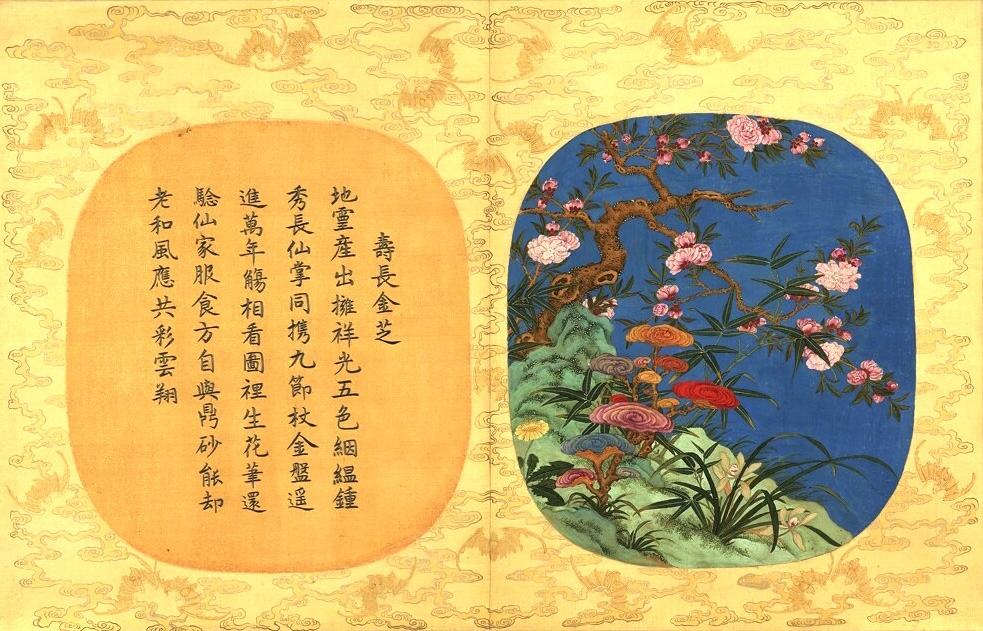 壽長金芝
地靈産出擁祥光五色絪縕鍾
秀長仙掌同携九節杖金盤遥
進萬年觴相看圖裡生花筆還
騐仙家服食方自與鼎砂能却
老和風應共彩雲翔